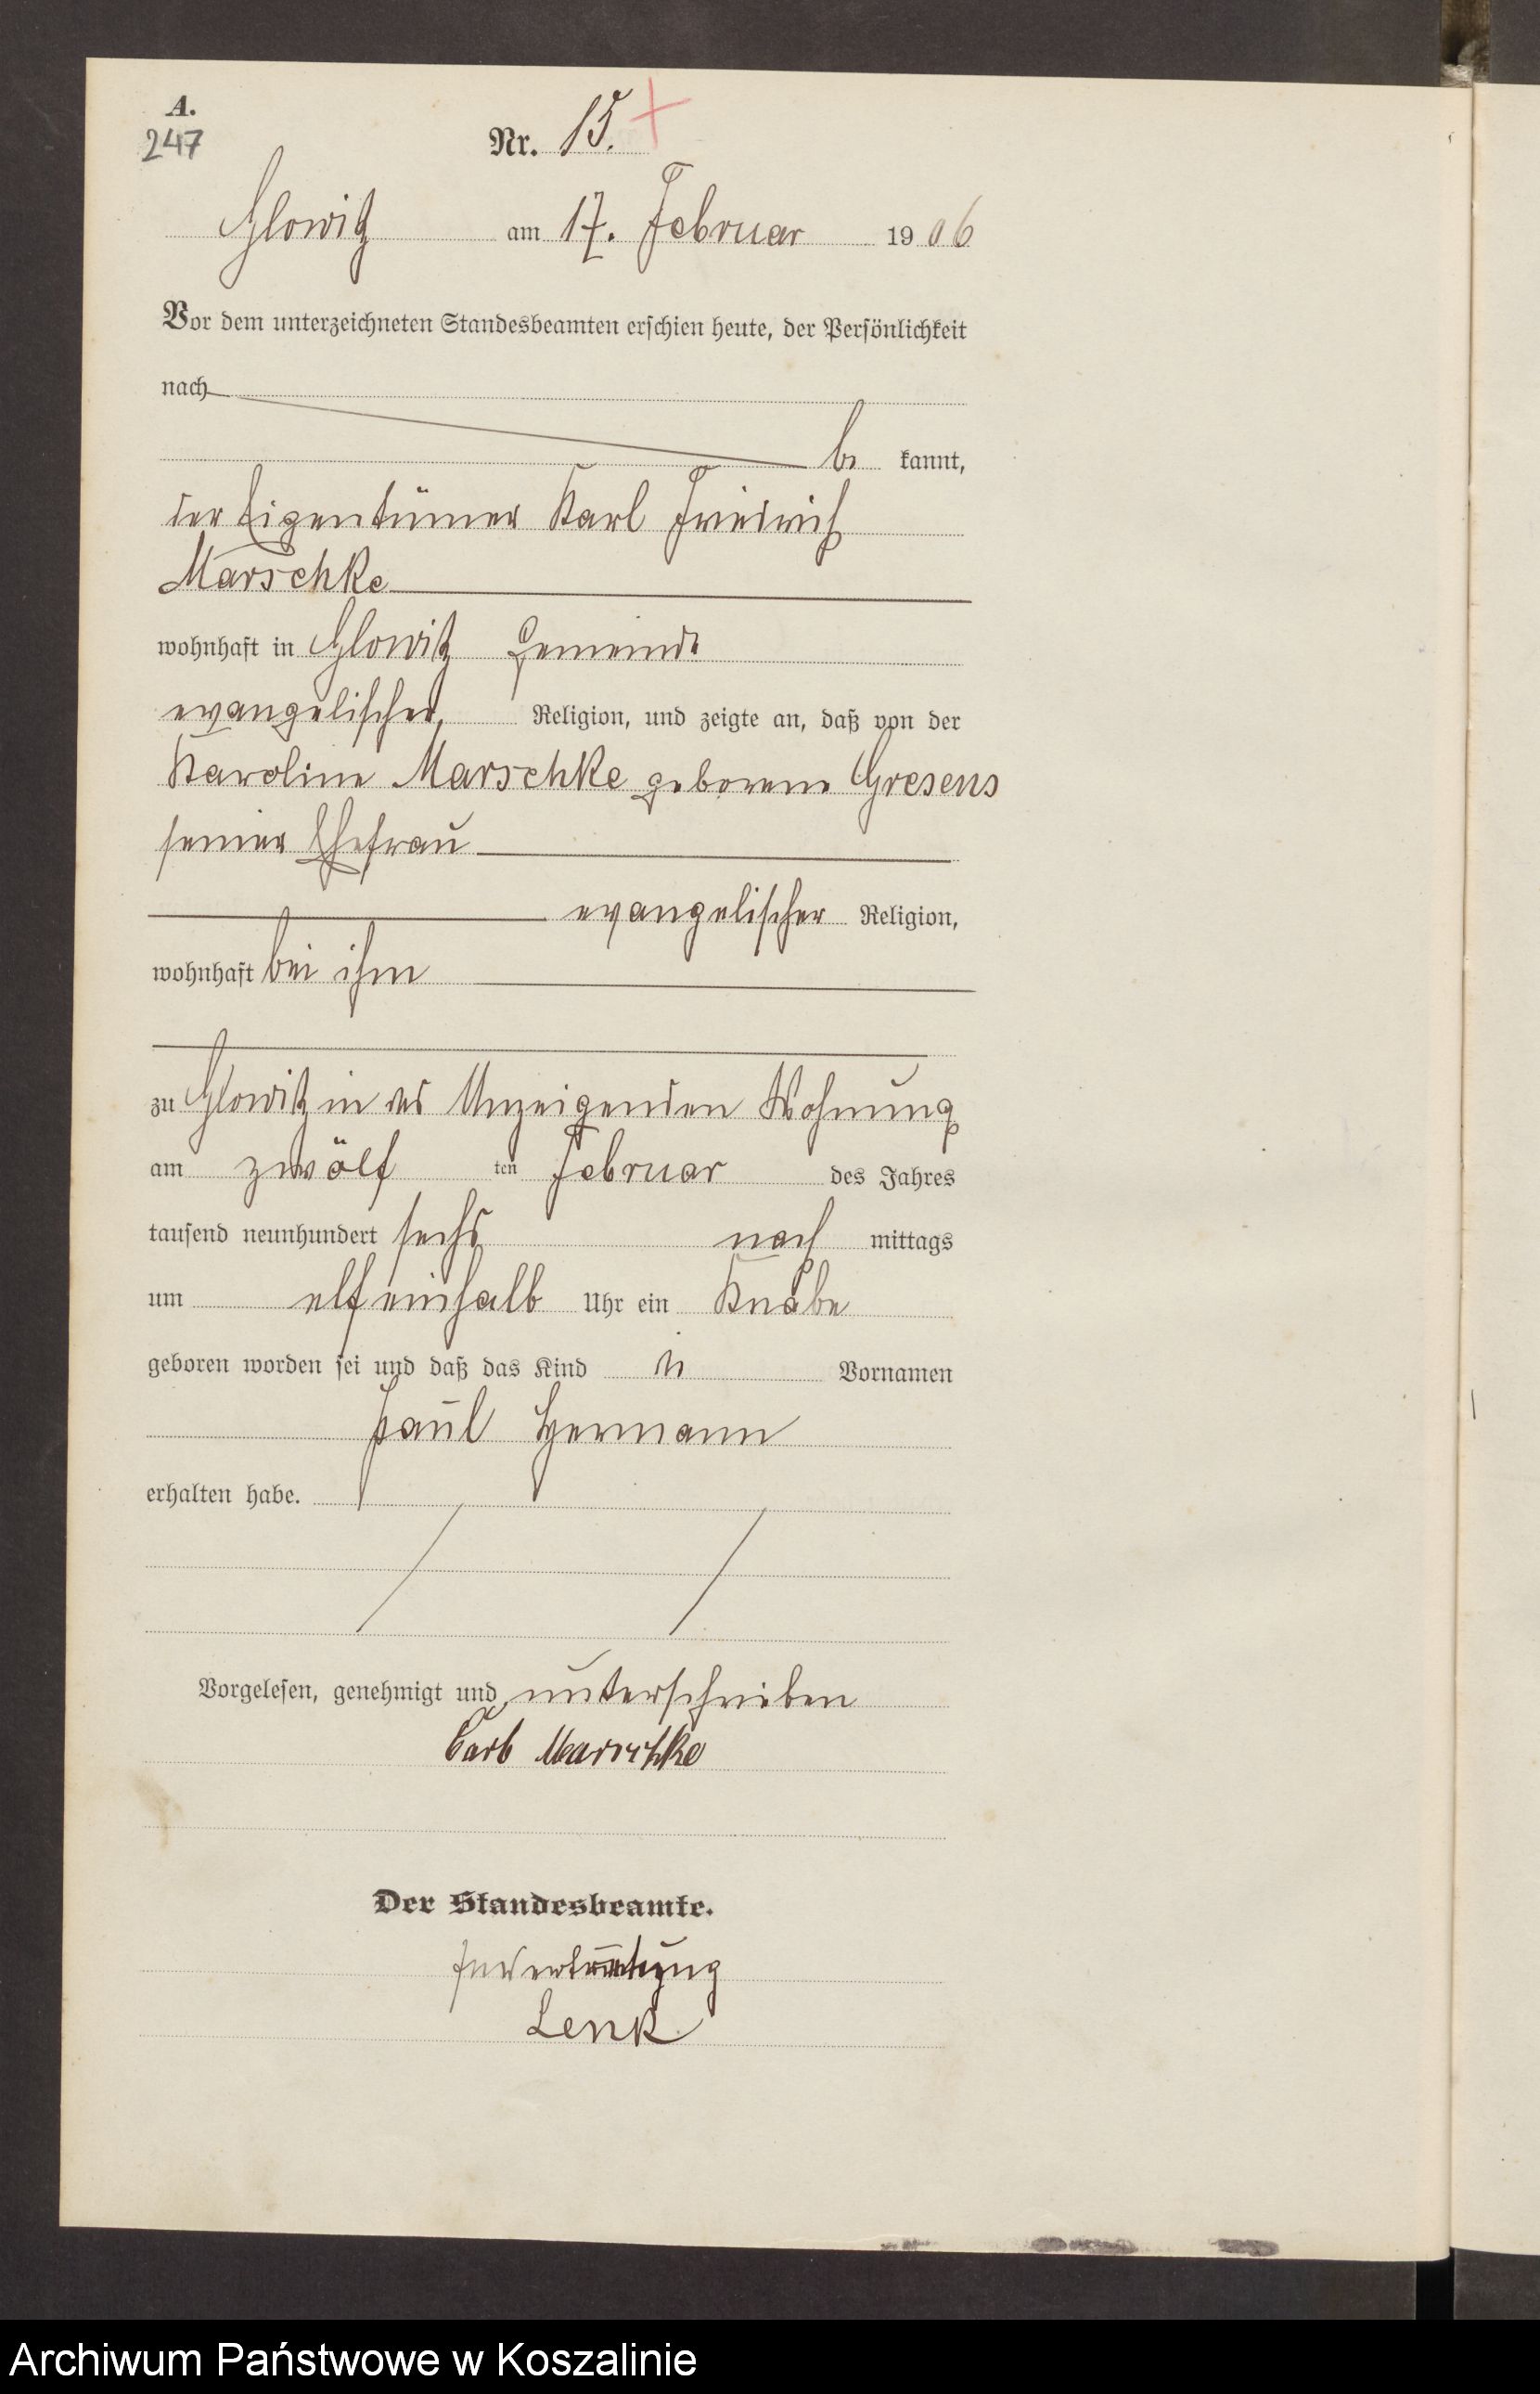 A.
247
Nr. 15.
Glowitz am 17. Februar 1906
Vor dem unterzeichneten Standesbeamten erschien heute, der Persönlichkeit
nach
be kannt,
der Eigentümer Karl Friedrich
Marschke
wohnhaft in Glowitz Gemeinde
evangelischer Religion, und zeigte an, daß von der
Karoline Marschke geborene Gresens
seiner Ehefrau
evangelischer Religion,
wohnhaft bei ihm
zu Glowitz in des Anzeigenden Wohnung
am zwölf ten Februar des Jahres
tausend neunhundert sechs nach mittags
um elfeinhalb Uhr ein Knabe
geboren worden sei und daß das Kind die Vornamen
Paul Hermann
erhalten habe.
Vorgelesen, genehmigt und unterschrieben
Carl Marschke
Der Standesbeamte.
In Vertretung
Lenk
Archiwum Państwowe w Koszalinie